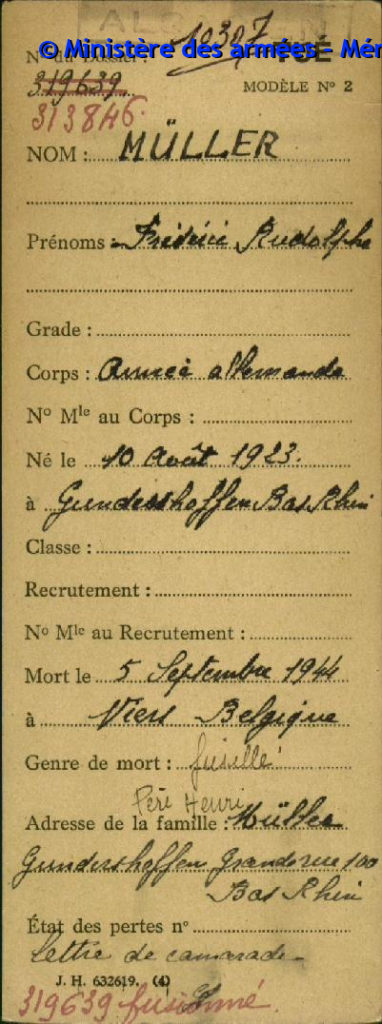 ALSACIEN
10307
© Ministère des armées - Mém
No du Dossier :
TUÉ
319639
MODÈLE No 2
313846.
NOM : MÜLLER
Prénoms : Frédéric Rudolphe
Grade :
Corps : Armée allemande
No Mle au Corps :
Né le 10 Août 1923.
à Gundershoffen Bas Rhin
Classe :
Recrutement :
No Mle au Recrutement :
Mort le 5 Septembre 1944
à Viers Belgique
Genre de mort : fusillé
Père Henri
Adresse de la famille : Müller
Gundershoffen Grande rue 100
Bas Rhin
État des pertes no
lettre de camarade
J. H. 632619. (4)
319639 fusionné.